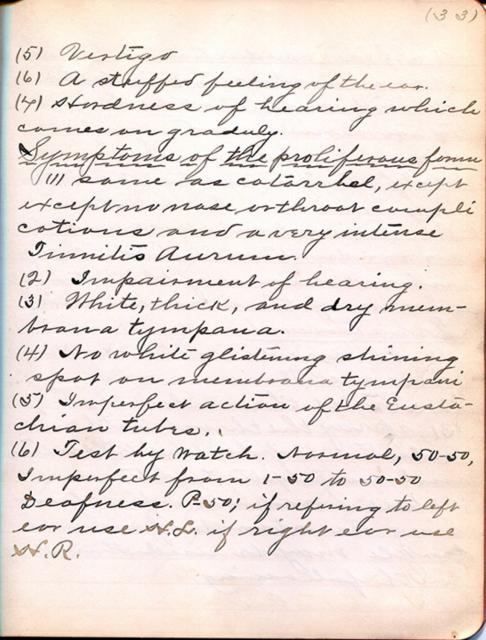 (33)
(5) Vertigo
(6) A stuffed feeling of the ear.
(4) Hardness of hearing which
comes on graduly.
Symptoms of the proliferous form
(1) same as catarrhel, except
except no nose or throat compli
cations and a very intense
Tinnitis Aurum.
(2) Impairment of hearing.
(3) White, thick, and dry mem-
brana tympana.
(4) No white glistening shining
spot on membrana tympani
(5) Imperfect action of the Eusta-
chian tubes.
(6) Test by Watch. Normal, 50-50,
Imperfect from 1-50 to 50-50
Deafness. P-50; if refering to left
ear use H.L. if right ear use
H.R.